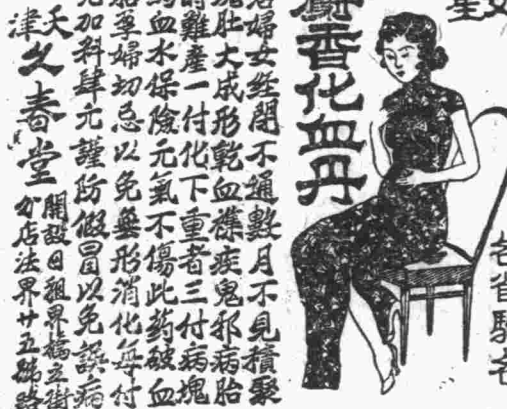 各省馳名
香化血丹
婦女經閉不通數月不見積聚
塊肚大成形乾血襍疾鬼邪病胎
難產一付化下重者三付病塊
血水保險元氣不傷此药破血
孕婦切忌以免無形消化每付
加料肆元謹防假冒以免誤病
天津久春堂
開設日租界橋立街
分店法界廿五號路